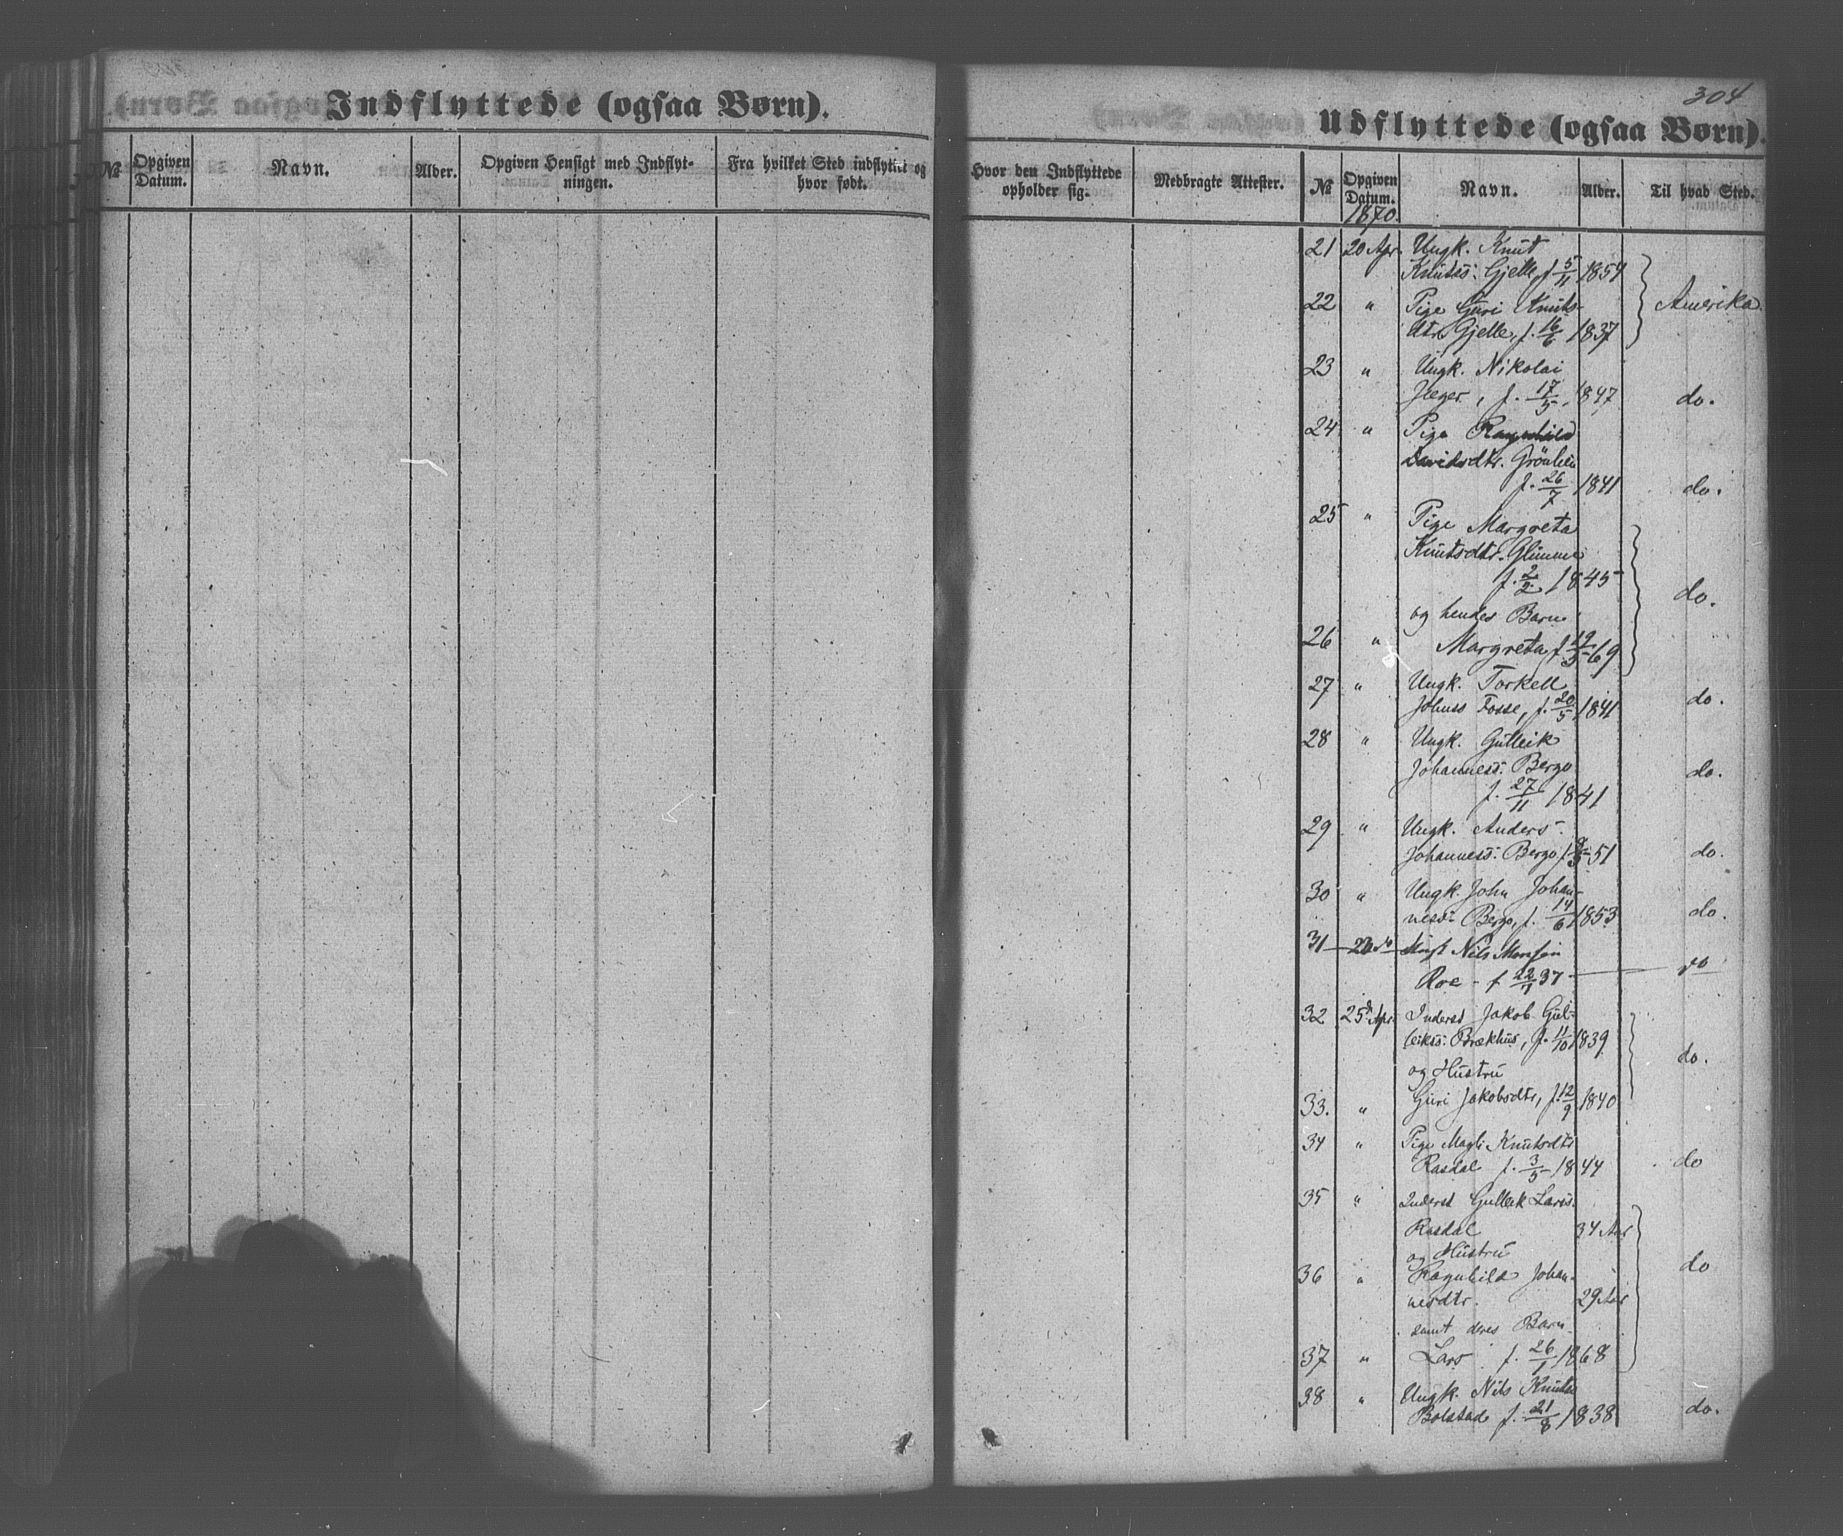 Indflyttede (ogsaa Børn).
№ Opgiven Datum. Navn. Alder. Opgiven Hensigt med Indflytningen. Fra hvilket Sted indflyttet og hvor født.
304
Udflyttede (ogsaa Børn).
Hvor den Indflyttede opholder sig. Medbragte Attester. № Opgiven Datum. Navn. Alder. Til hvad Sted.
1870.
21 20 Apr. Ungk. Knut
Knutss. Gjelle, f. 5/11 1854
22 " Pige Guri Knuts- Amerika
dtr. Gjelle, f. 16/6 1837
23 " Ungk. Nikolai
Jæger, f. 17/5 1847 do.
24 " Pige Ragnhild
Davidsdtr. Grönlien
f. 26/7 1841 do.
25 " Pige Margreta
Knutsdtr. Glimme
f. 2/2 1845 do.
og hendes Barn
26 " Margreta f. 19/5 69
27 " Ungk. Torkell
Johnss Fosse, f. 20/5 1841 do.
28 " Ungk. Gulleik
Johanness. Bergo do.
f. 27/11 1841
29 " Ungk. Anders
Johanness. Bergo f. 51 do.
30 " Ungk. John Johan-
ness. Bergo, f. 14/6 1853 do.
31 Nils Monsen
Roe - f 22/11 37 do
32 25 Apr. Inderst Jakob Gul-
leikss. Brækhus, f. 11/10 1839 do.
og Hustru
33. " Guri Jakobsdtr, f. 12/9 1840
34 " Pige Magli Knutsdtr
Rasdal f. 3/5 1844 do
35 " Inderst Gulleik Larss.
Rasdal 34 Aar
og Hustru
36 " Ragnhild Johan- do
nesdtr. 29 Aar
samt deres Barn
37 " Lars f. 26/1 1868
38 " Ungk. Nils Knutss
Bolstad f. 21/8 1838 do.